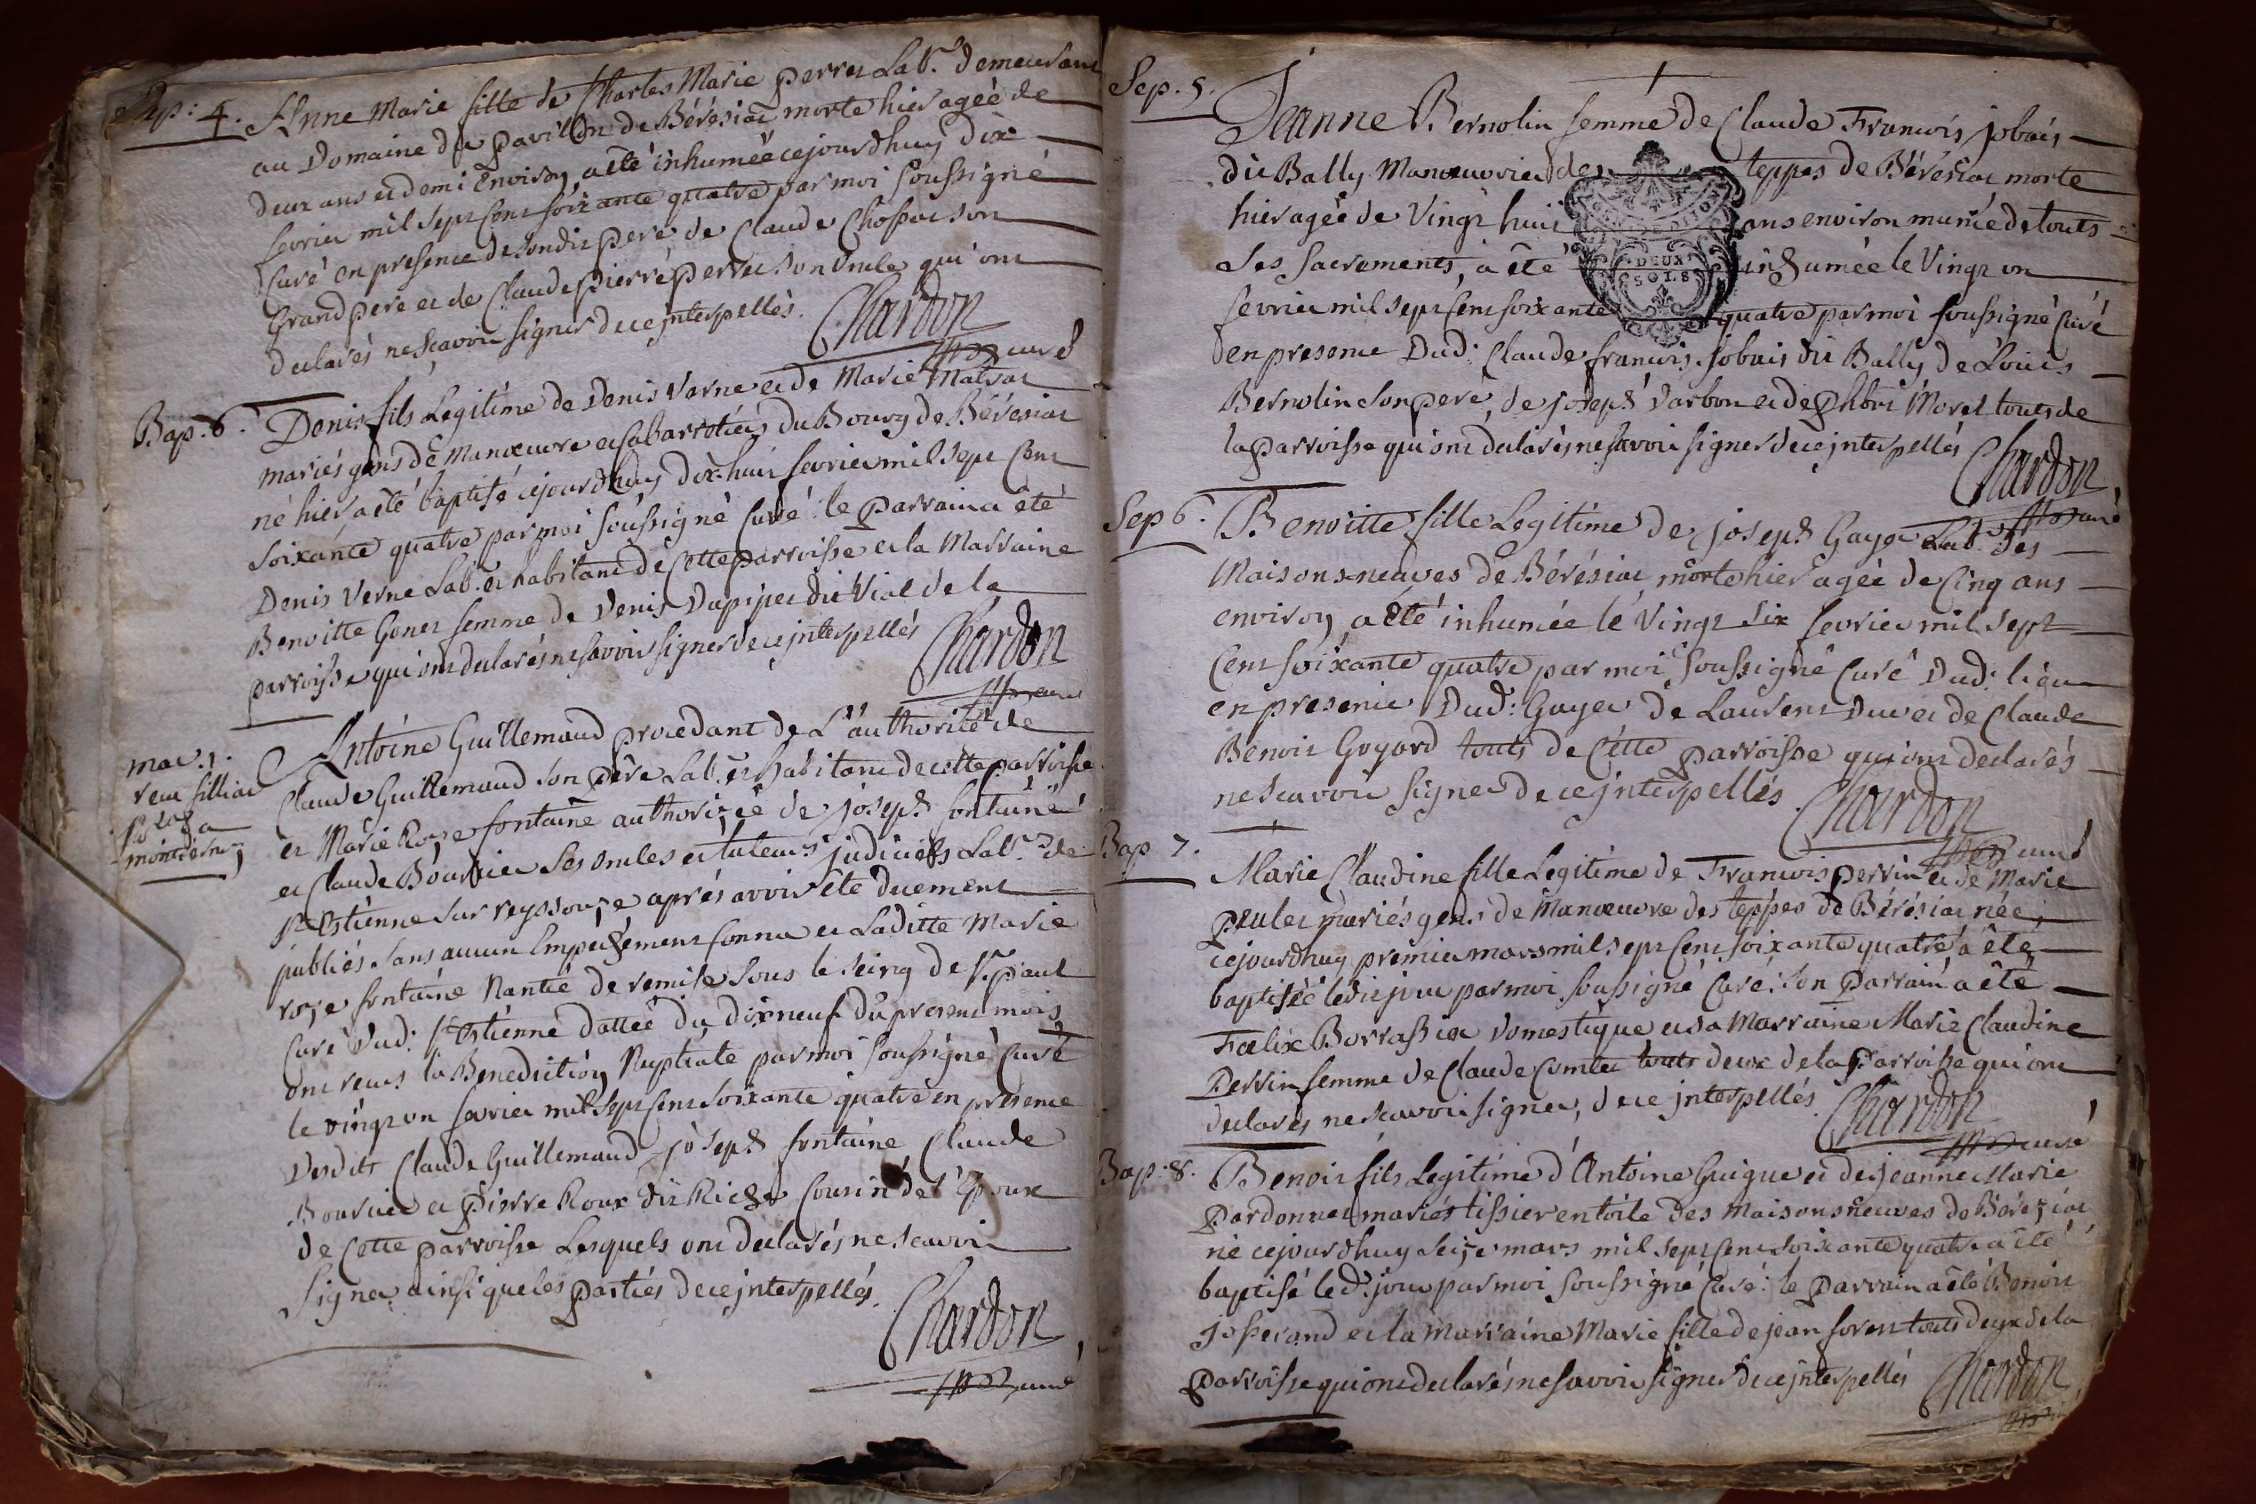 Sep: 4. Anne Marie fille de Charles Marie perret Lab.r demeurant
au Domaine du pavillon de Béréziat morte hier agée de
deux ans et demi Environ, a été inhumée cejourdhuy dix
fevrier mil sept cent soixante quatre par moi soussigné
Curé en presence de sondit pere de Claude Chossat son
Grand pere et de Claude pierre perret son oncle qui ont
declarés ne scavoir signer de ce jnterpellés.
Chardon
curé
Bap. 6. Denis fils Legitime de Denis Varne et de Marie
mariés gens de Manœuvre et Cabarrotiers du Bourg de Béréziat
né hier a été baptisé cejourdhuy dix-huit fevrier mil sept Cent
soixante quatre par moi soussigné Curé: le parrain a été
Denis Verne Lab. et habitant de Cette parroisse et la Marraine
Benoitte Gonet femme de Denis Dupipet dit Vial de la
parroisse qui ont declarés ne savoir signer de ce jnterpellés
Chardon
curé
mar. 1.
Antoine Guillemaud procedant de L'authorité de
Claude Guillemaud son pére Lab. et habitant de cette parroisse
et Marie Roze fontaine authorizée de joseph fontaine
et Claude Bourcier ses oncles et tuteurs judiciels Lab.rs de
St Estienne sur reyssouze aprés avoir été duement
publiés sans aucun Empechement Connu et Laditte Marie
roze fontaine Nantie de remise sous le seing de Sr paul
Curé dud: St Estienne dattée du dixneuf du present mois
ont reçus la Benediction Nuptiale par moi soussigné Curé
le vingt un fevrier mil sept Cent soixante quatre en presence
desdits Claude Guillemaud joseph fontaine Claude
Bourcier et pierre Roux dit Riche Cousin de l'Epoux
de Cette parroisse Lesquels ont declarés ne scavoir
signer ainsi que les parties de ce jnterpellés.
Chardon
curé
Sep. 5.
Jeanne Bernolin femme de Claude Francois jobais
dit Bally Manœuvrier des teppes de Béréziat morte
hier agée de Vingt huit ans environ munie de touts
Les Sacrements, a été inhumée le Vingt un
DEUX
SOLS
fevrier mil sept Cent soixante quatre par moi soussigné Curé
en presence Dud: Claude francois jobais dit Bally de Louis
Bernolin son pere, de joseph Varbon et de phbri Morel touts de
la parroisse qui ont declarés ne savoir signer de ce jnterpellés
Chardon
curé
Sep 6. Benoitte fille Legitime de joseph Gayet Lab. des
Maisons neuves de Béréziat morte hier agée de Cinq ans
environ, a été inhumée le Vingt six fevrier mil sept
Cent soixante quatre par moi soussigné Curé Dud: lieu
en presence Dud: Gayet de Laurent Duc et de Claude
Benoit Goyard touts de Cette parroisse qui ont declarés
ne scavoir signer de ce jnterpellés.
Chardon
curé
Bap 7. Marie Claudine fille Legitime de Francois perrin et de Marie
peulet mariés gens de Manœuvre des teppes de Béréziat née
cejourdhuy premier mars mil sept Cent soixante quatre a été
baptisée ledit jour par moi soussigné Curé: son Parrain a été
Fœlix Borrassier domestique et sa Marraine Marie Claudine
Perrin femme de Claude Comtet touts deux de la Parroisse qui ont
declarés ne scavoir signer, de ce jnterpellés
Chardon
curé
Bap: 8. Benoit fils Legitime d'Antoine Guigue et de jeanne Marie
Pardonnet mariés tissier en toile des Maisons neuves de Béréziat
né cejourdhuy seize mars mil sept Cent soixante quatre a été
baptisé led. jour par moi soussigné Curé: le parrain a été Benoit
josserand et la marraine Marie fille de jean foret touts deux de la
parroisse qui ont declarés ne savoir signer de ce jnterpellés
Chardon